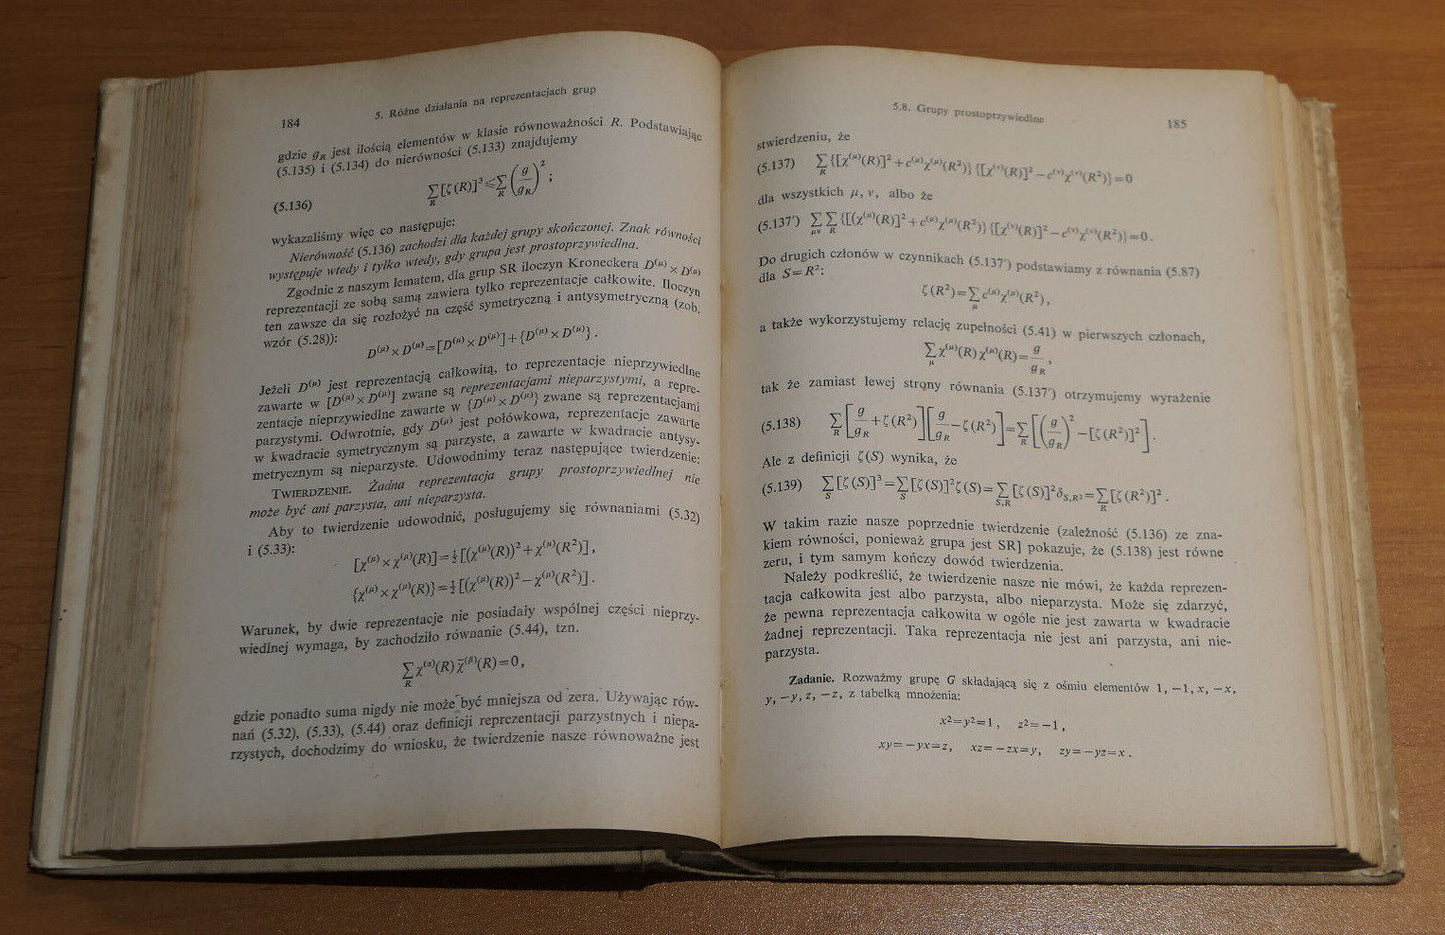 184
5. Różne działania na reprezentacjach grup
gdzie g_R jest ilością elementów w klasie równoważności R. Podstawiając
(5.135) i (5.134) do nierówności (5.133) znajdujemy
(5.136) ∑_R [ζ(R)]³ ≤ ∑_R (g/g_R)² ;
wykazaliśmy więc co następuje:
Nierówność (5.136) zachodzi dla każdej grupy skończonej. Znak równości
występuje wtedy i tylko wtedy, gdy grupa jest prostoprzywiedlna.
Zgodnie z naszym lematem, dla grup SR iloczyn Kroneckera D^(μ) × D^(μ)
reprezentacji ze sobą samą zawiera tylko reprezentacje całkowite. Iloczyn
ten zawsze da się rozłożyć na część symetryczną i antysymetryczną (zob.
wzór (5.28)):
D^(μ) × D^(μ) = [D^(μ) × D^(μ)] + {D^(μ) × D^(μ)} .
Jeżeli D^(μ) jest reprezentacją całkowitą, to reprezentacje nieprzywiedlne
zawarte w [D^(μ) × D^(μ)] zwane są reprezentacjami nieparzystymi, a repre-
zentacje nieprzywiedlne zawarte w {D^(μ) × D^(μ)} zwane są reprezentacjami
parzystymi. Odwrotnie, gdy D^(μ) jest połówkowa, reprezentacje zawarte
w kwadracie symetrycznym są parzyste, a zawarte w kwadracie antysy-
metrycznym są nieparzyste. Udowodnimy teraz następujące twierdzenie:
TWIERDZENIE. Żadna reprezentacja grupy prostoprzywiedlnej nie
może być ani parzysta, ani nieparzysta.
Aby to twierdzenie udowodnić, posługujemy się równaniami (5.32)
i (5.33):
[χ^(μ) × χ^(μ)(R)] = ½ [(χ^(μ)(R))² + χ^(μ)(R²)] ,
{χ^(μ) × χ^(μ)(R)} = ½ [(χ^(μ)(R))² − χ^(μ)(R²)] .
Warunek, by dwie reprezentacje nie posiadały wspólnej części nieprzy-
wiedlnej wymaga, by zachodziło równanie (5.44), tzn.
∑_R χ^(α)(R) χ̄^(β)(R) = 0 ,
gdzie ponadto suma nigdy nie może być mniejsza od zera. Używając rów-
nań (5.32), (5.33), (5.44) oraz definicji reprezentacji parzystnych i niepa-
rzystych, dochodzimy do wniosku, że twierdzenie nasze równoważne jest
5.8. Grupy prostoprzywiedlne
185
stwierdzeniu, że
(5.137) ∑_R {[χ^(μ)(R)]² + c^(μ)χ^(μ)(R²)} {[χ^(ν)(R)]² − c^(ν)χ^(ν)(R²)} = 0
dla wszystkich μ, ν, albo że
(5.137′) ∑_μν ∑_R {[(χ^(μ)(R)]² + c^(μ)χ^(μ)(R²)} {[χ^(ν)(R)]² − c^(ν)χ^(ν)(R²)} = 0 .
Do drugich członów w czynnikach (5.137′) podstawiamy z równania (5.87)
dla S = R²:
ζ(R²) = ∑_μ c^(μ)χ^(μ)(R²) ,
a także wykorzystujemy relację zupełności (5.41) w pierwszych członach,
∑_μ χ^(μ)(R) χ^(μ)(R) = g/g_R ,
tak że zamiast lewej strony równania (5.137′) otrzymujemy wyrażenie
(5.138) ∑_R [g/g_R + ζ(R²)] [g/g_R − ζ(R²)] = ∑_R [(g/g_R)² − [ζ(R²)]²] .
Ale z definicji ζ(S) wynika, że
(5.139) ∑_S [ζ(S)]³ = ∑_S [ζ(S)]²ζ(S) = ∑_S,R [ζ(S)]²δ_S,R² = ∑_R [ζ(R²)]² .
W takim razie nasze poprzednie twierdzenie (zależność (5.136) ze zna-
kiem równości, ponieważ grupa jest SR] pokazuje, że (5.138) jest równe
zeru, i tym samym kończy dowód twierdzenia.
Należy podkreślić, że twierdzenie nasze nie mówi, że każda reprezen-
tacja całkowita jest albo parzysta, albo nieparzysta. Może się zdarzyć,
że pewna reprezentacja całkowita w ogóle nie jest zawarta w kwadracie
żadnej reprezentacji. Taka reprezentacja nie jest ani parzysta, ani nie-
parzysta.
Zadanie. Rozważmy grupę G składającą się z ośmiu elementów 1, −1, x, −x,
y, −y, z, −z, z tabelką mnożenia:
x² = y² = 1 , z² = −1 ,
xy = −yx = z, xz = −zx = y, zy = −yz = x .